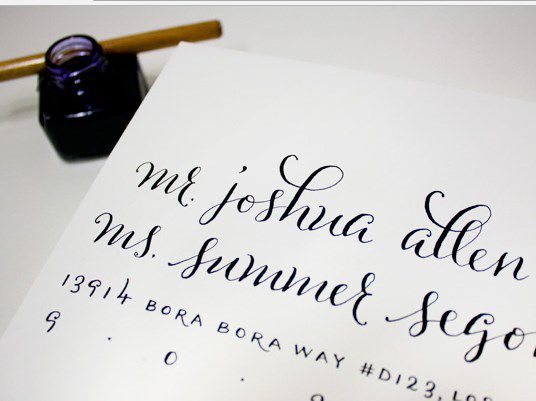 mr. joshua allen
ms. summer
13914 BORA BORA WAY #D123,
9 . 0 .